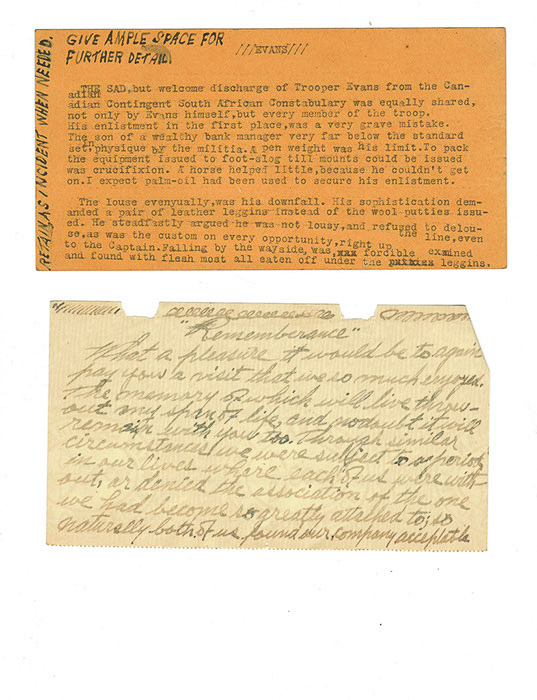 RETAIN AS INCIDENT WHEN NEEDED.
GIVE AMPLE SPACE FOR
FURTHER DETAIL
///EVANS///
THE SAD,but welcome discharge of Trooper Evans from the Can-
adian Contingent South African Constabulary was equally shared,
not only by Evans himself,but every member of the troop.
His enlistment in the first place,was a very grave mistake.
The son of a wealthy bank manager very far below the standard
set in physique by the militia. A pen weight was his limit.To pack
the equipment issued to foot-slog till mounts could be issued
was crucifixion. A horse helped little,because he couldn't get
on.I expect palm-oil had been used to secure his enlistment.
The louse evenyually,was his downfall. His sophistication dem-
anded a pair of leather leggins instead of the wool putties issu-
ed. He steadfastly argued he was not lousy,and refused to delou-
se,as was the custom on every opportunity,right up the line,even
to the Captain.Falling by the wayside, was, forcible examined
and found with flesh most all eaten off under the leggins.
"Rememberance"
What a pleasure it would be to again
pay you a visit that we so much enjoyed.
The memory of which will live throw-
out my span of life, and no doubt it will
remain with you too. Through similar
circumstances we were subject to a period
in our lives where each of us were with-
out, or denied the association of the one
we had become so greatly attatched to; so
naturally both of us found our company acceptable